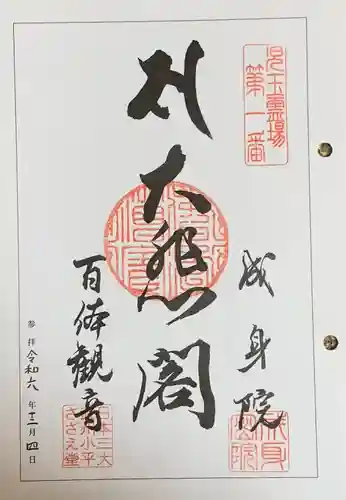 児玉霊場
第一番
成身院
大悲閣
百体観音
日本三大
小平
さざえ堂
成身
院
参拝令和六年十二月四日